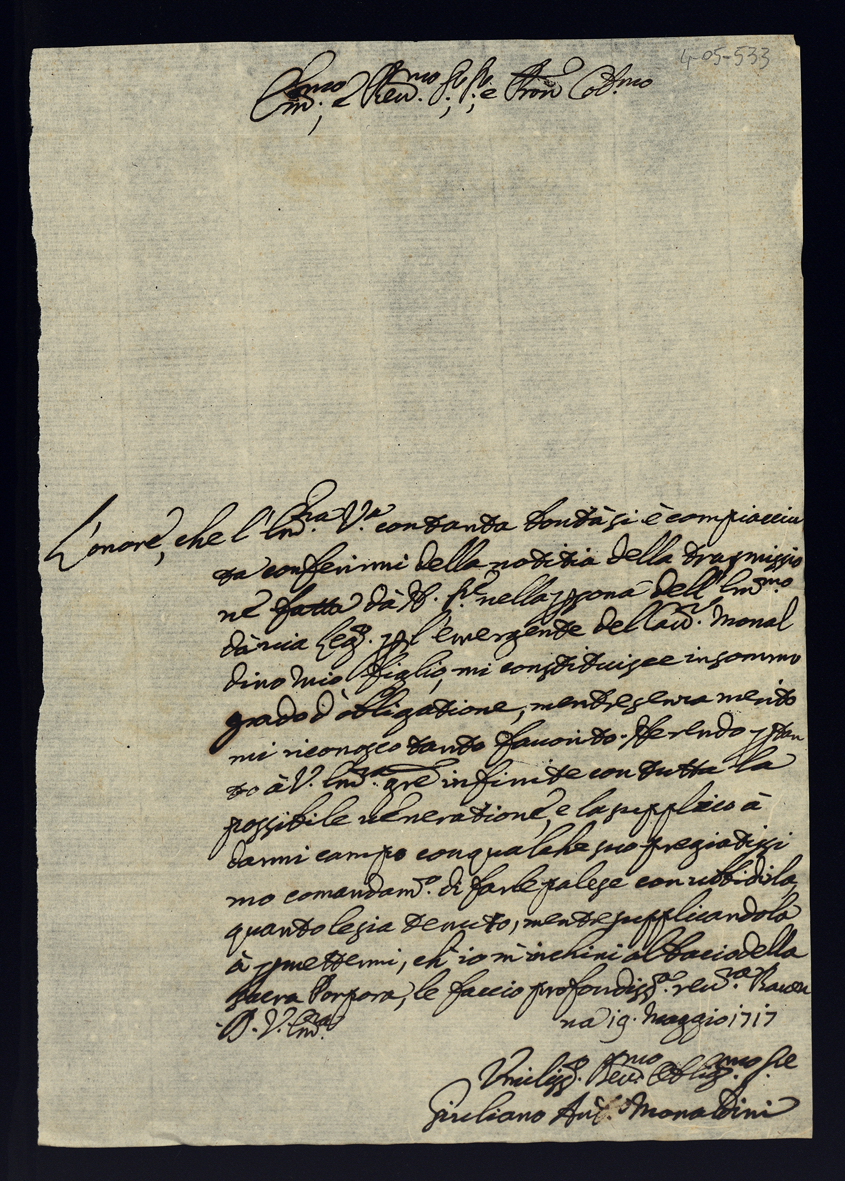 4-05-533
Em.mo, e Reu.mo Sig.r Sig.r e Pron Col.mo
L'onore, che l'Em.za V.a con tanta bontà si è compiaciu
ta conferirmi della notitia della trasmissio
ne fatta dà N. S.re nella psona dell'Em.mo
dino mio figlio, mi constituisce in sommo
grado d'obligatione, mentre senza merito
mi riconosco tanto fauorito. Rendo ptan
to à V. Em.a gre infinite con tutta la
possibile ueneratione, e la supplico à
darmi campo con qualche suo pregiatissi
mo comandam.o di farle palese con ubbidirla,
quanto le sia tenuto, mentre supplicandola
à pmettermi, ch'io m'inchini al bacio della
Sacra Porpora, le faccio profondiss.a reu.a Rauen
D. V. Em.a na 19. Maggio 1717
Vmiliss.o Reu.mo Oblig.mo Sre
Giuliano Ant.o Monaldini